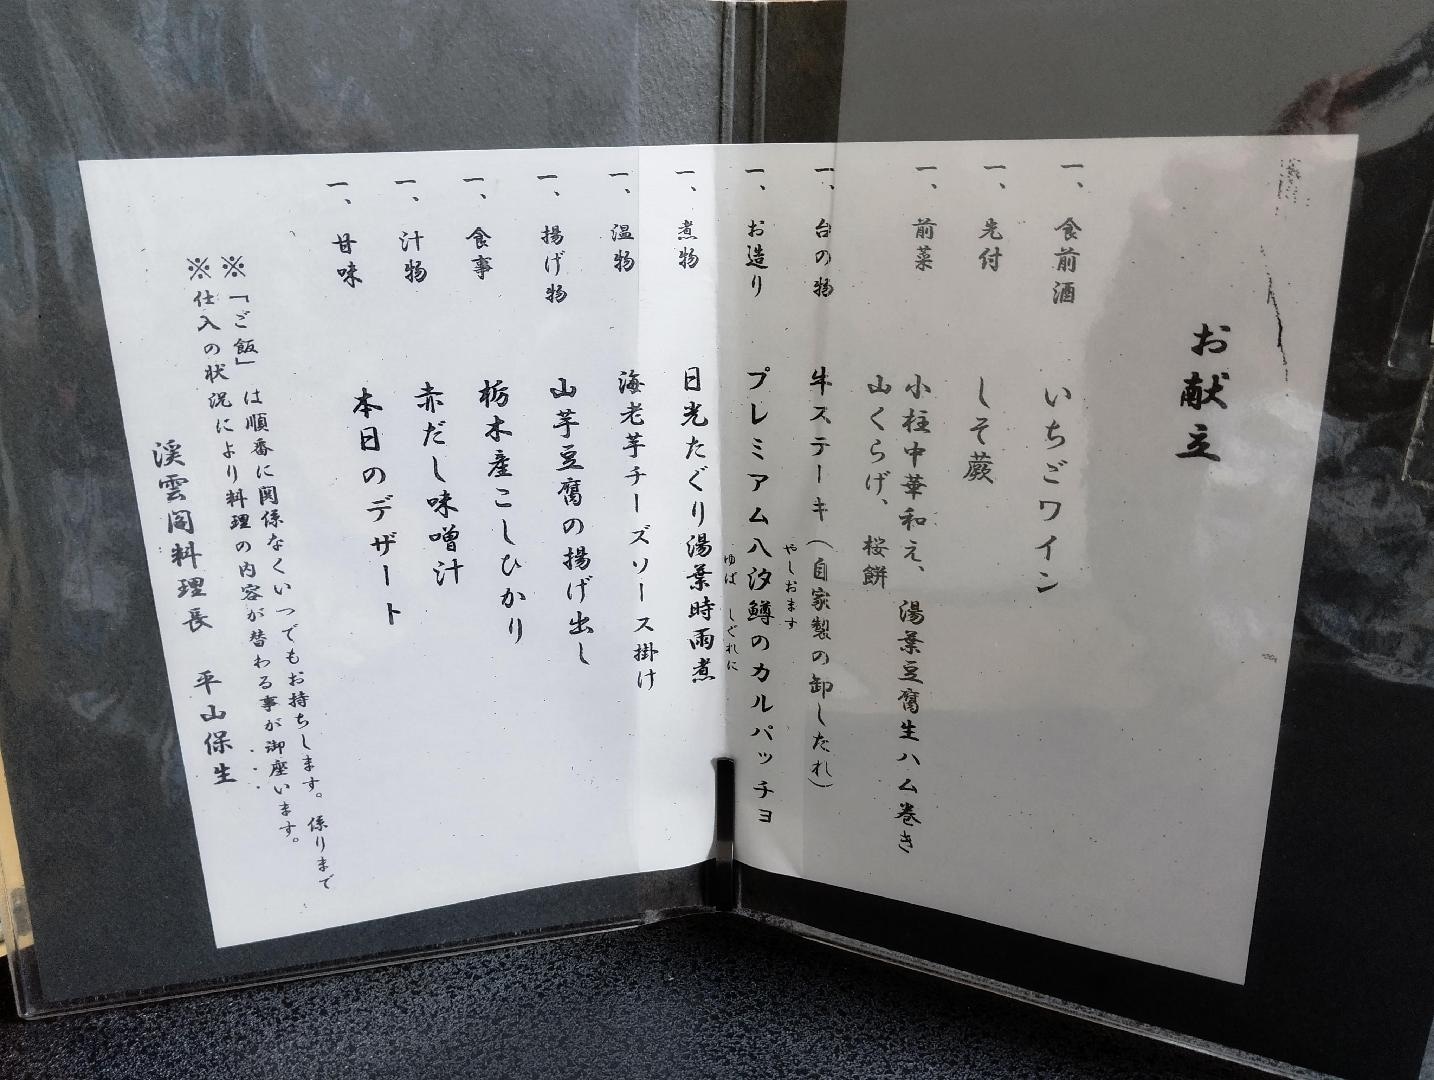 お献立
一、食前酒　いちごワイン
一、先付　しそ蕨
一、前菜　小柱中華和え、湯葉豆腐生ハム巻き
山くらげ、桜餅
一、台の物　牛ステーキ（自家製の卸したれ）
やしおます
一、お造り　プレミアム八汐鱒のカルパッチョ
ゆば　しぐれに
一、煮物　日光たぐり湯葉時雨煮
一、温物　海老芋チーズソース掛け
一、揚げ物　山芋豆腐の揚げ出し
一、食事　栃木産こしひかり
一、汁物　赤だし味噌汁
一、甘味　本日のデザート
※「ご飯」は順番に関係なくいつでもお持ちします。係りまで
※仕入の状況により料理の内容が替わる事が御座います。
渓雲閣料理長　平山保生